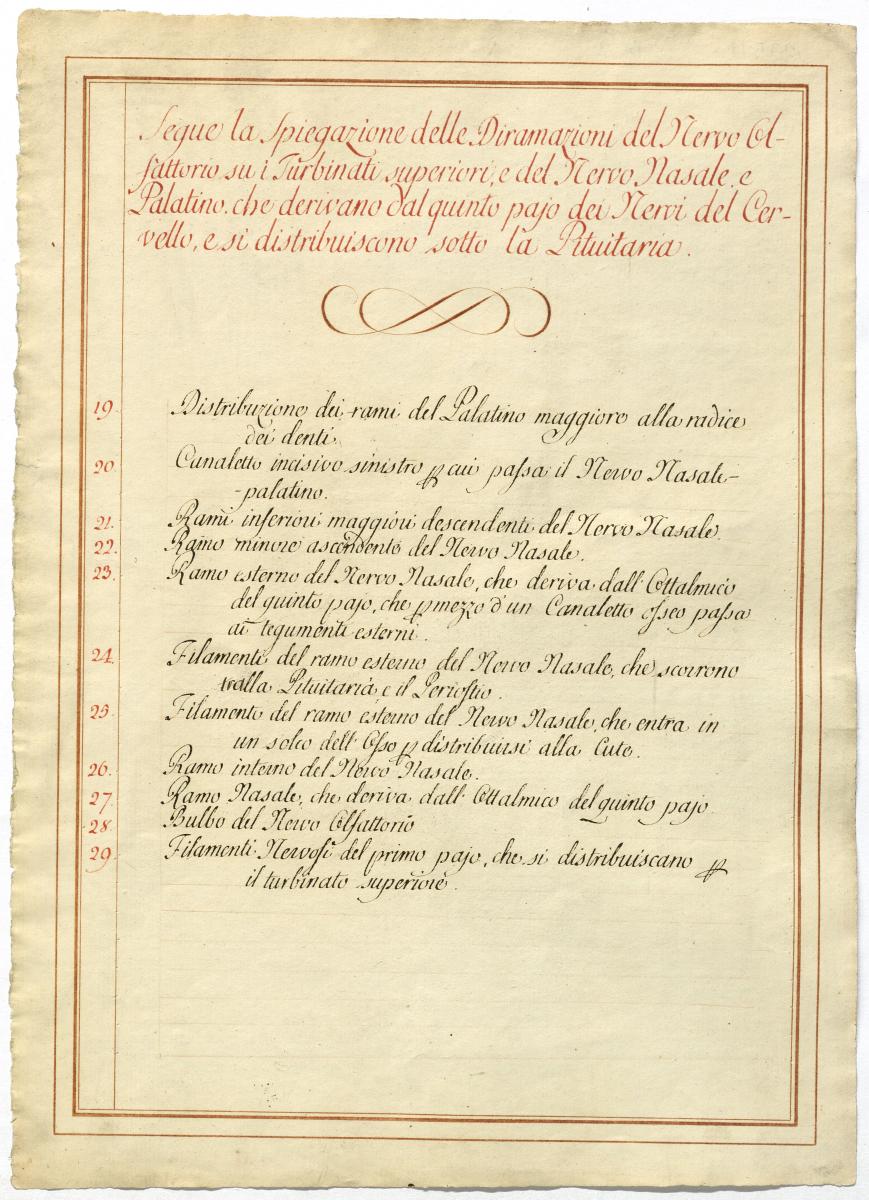 Segue la Spiegazione delle Diramazioni del Nervo Ol-
fattorio su i Turbinati superiori, e del Nervo Nasale, e
Palatino, che derivano dal quinto pajo dei Nervi del Cer-
vello, e si distribuiscono sotto la Pituitaria.
19. Distribuzione dei rami del Palatino maggiore alla radice
dei denti.
20. Canaletto incisivo sinistro ꝑ cui passa il Nervo Nasale-
-palatino.
21. Rami inferiori maggiori descendenti del Nervo Nasale.
22. Ramo minore ascendente del Nervo Nasale.
23. Ramo esterno del Nervo Nasale, che deriva dall'Ottalmico
del quinto pajo, che ꝑ mezzo d'un Canaletto osseo passa
ai tegumenti esterni.
24. Filamenti del ramo esterno del Nervo Nasale, che scorrono
tralla Pituitaria e il Periostio.
25. Filamento del ramo esterno del Nervo Nasale, che entra in
un solco dell'Osso ꝑ distribuirsi alla Cute.
26. Ramo interno del Nervo Nasale.
27. Ramo Nasale, che deriva dall'Ottalmico del quinto pajo
28. Bulbo del Nervo Olfattorio
29. Filamenti Nervosi del primo pajo, che si distribuiscano ꝑ
il turbinato superiore.